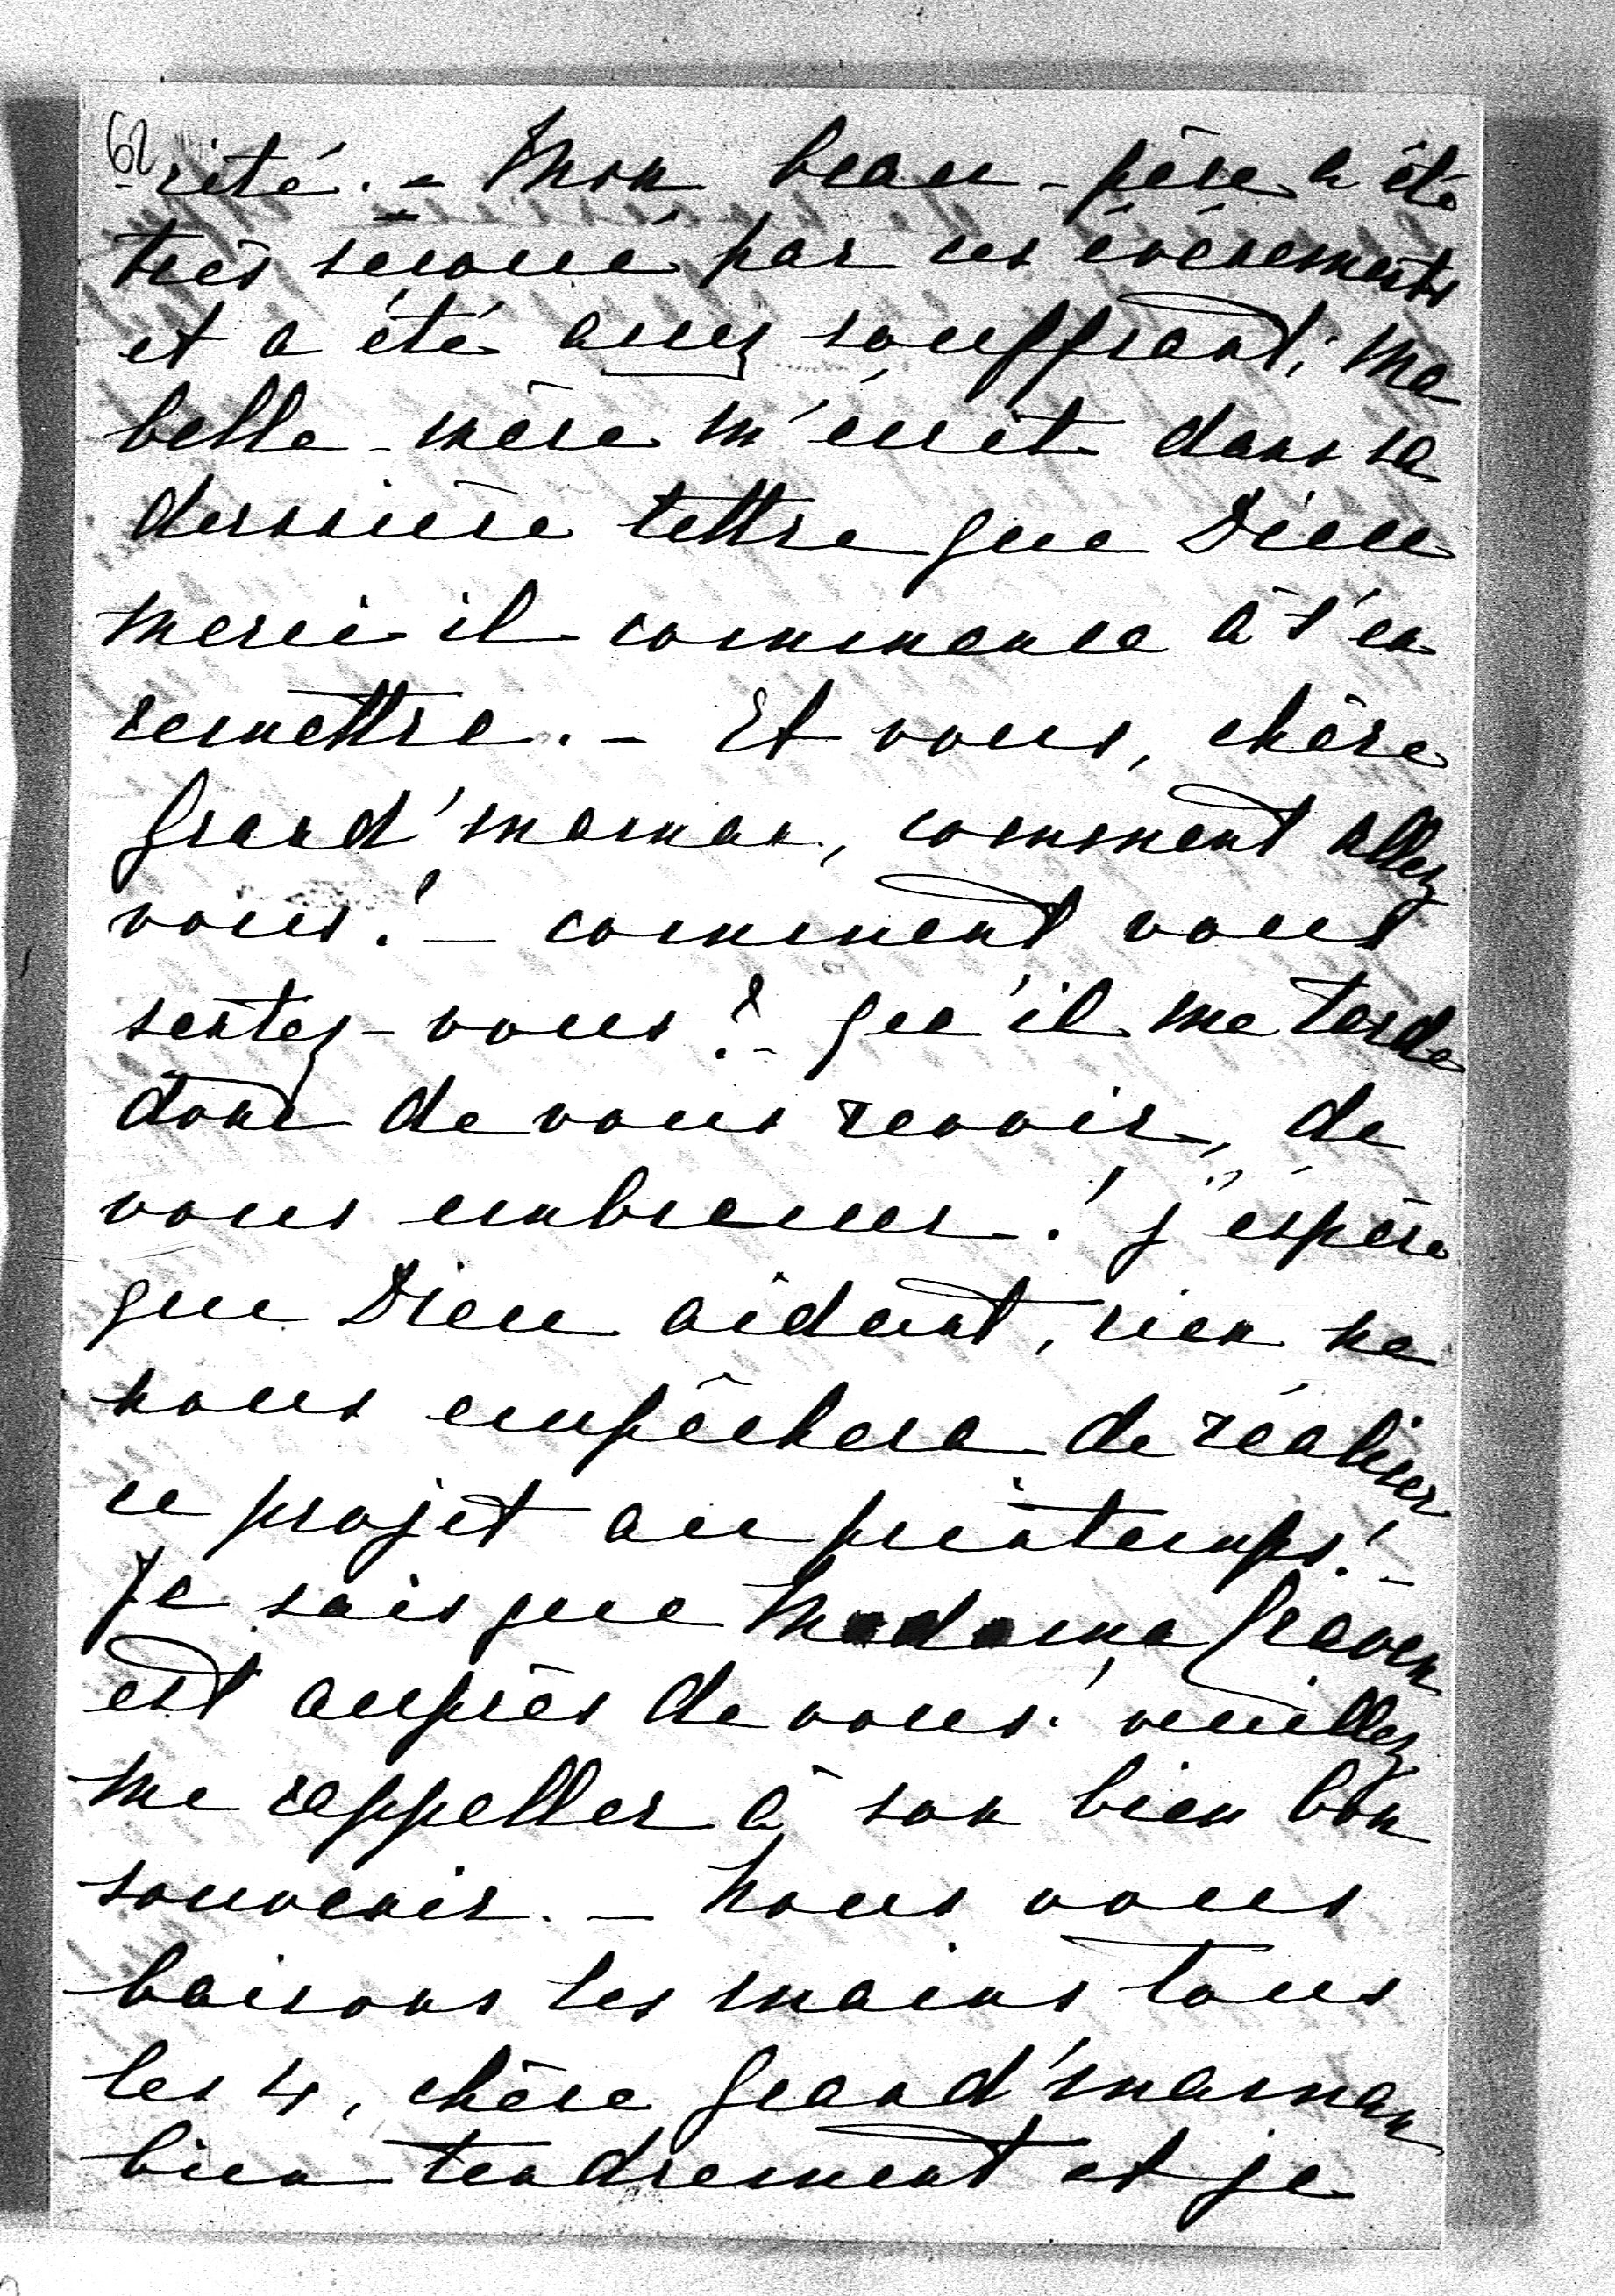 62
-rité. – Mon beau-père a été
très secoué par ces événements
et a été assez souffrant; ma
belle-mère m'écrit dans sa
dernière lettre que Dieu
merci il commence à s'en
remettre. – Et vous, chère
Grand'maman, comment allez
vous! – comment vous
sentez-vous? – Qu'il me tarde
donc de vous revoir, de
vous embrasser! j'espère
que Dieu aidant, rien ne
nous empêchera de réaliser
ce projet au printemps! –
Je sais que Madame Gräven
est auprès de vous! veuillez
me rappeller à son bien bon
souvenir. – Nous vous
baisons les mains tous
les 4, chère Grand'maman
bien tendrement et je